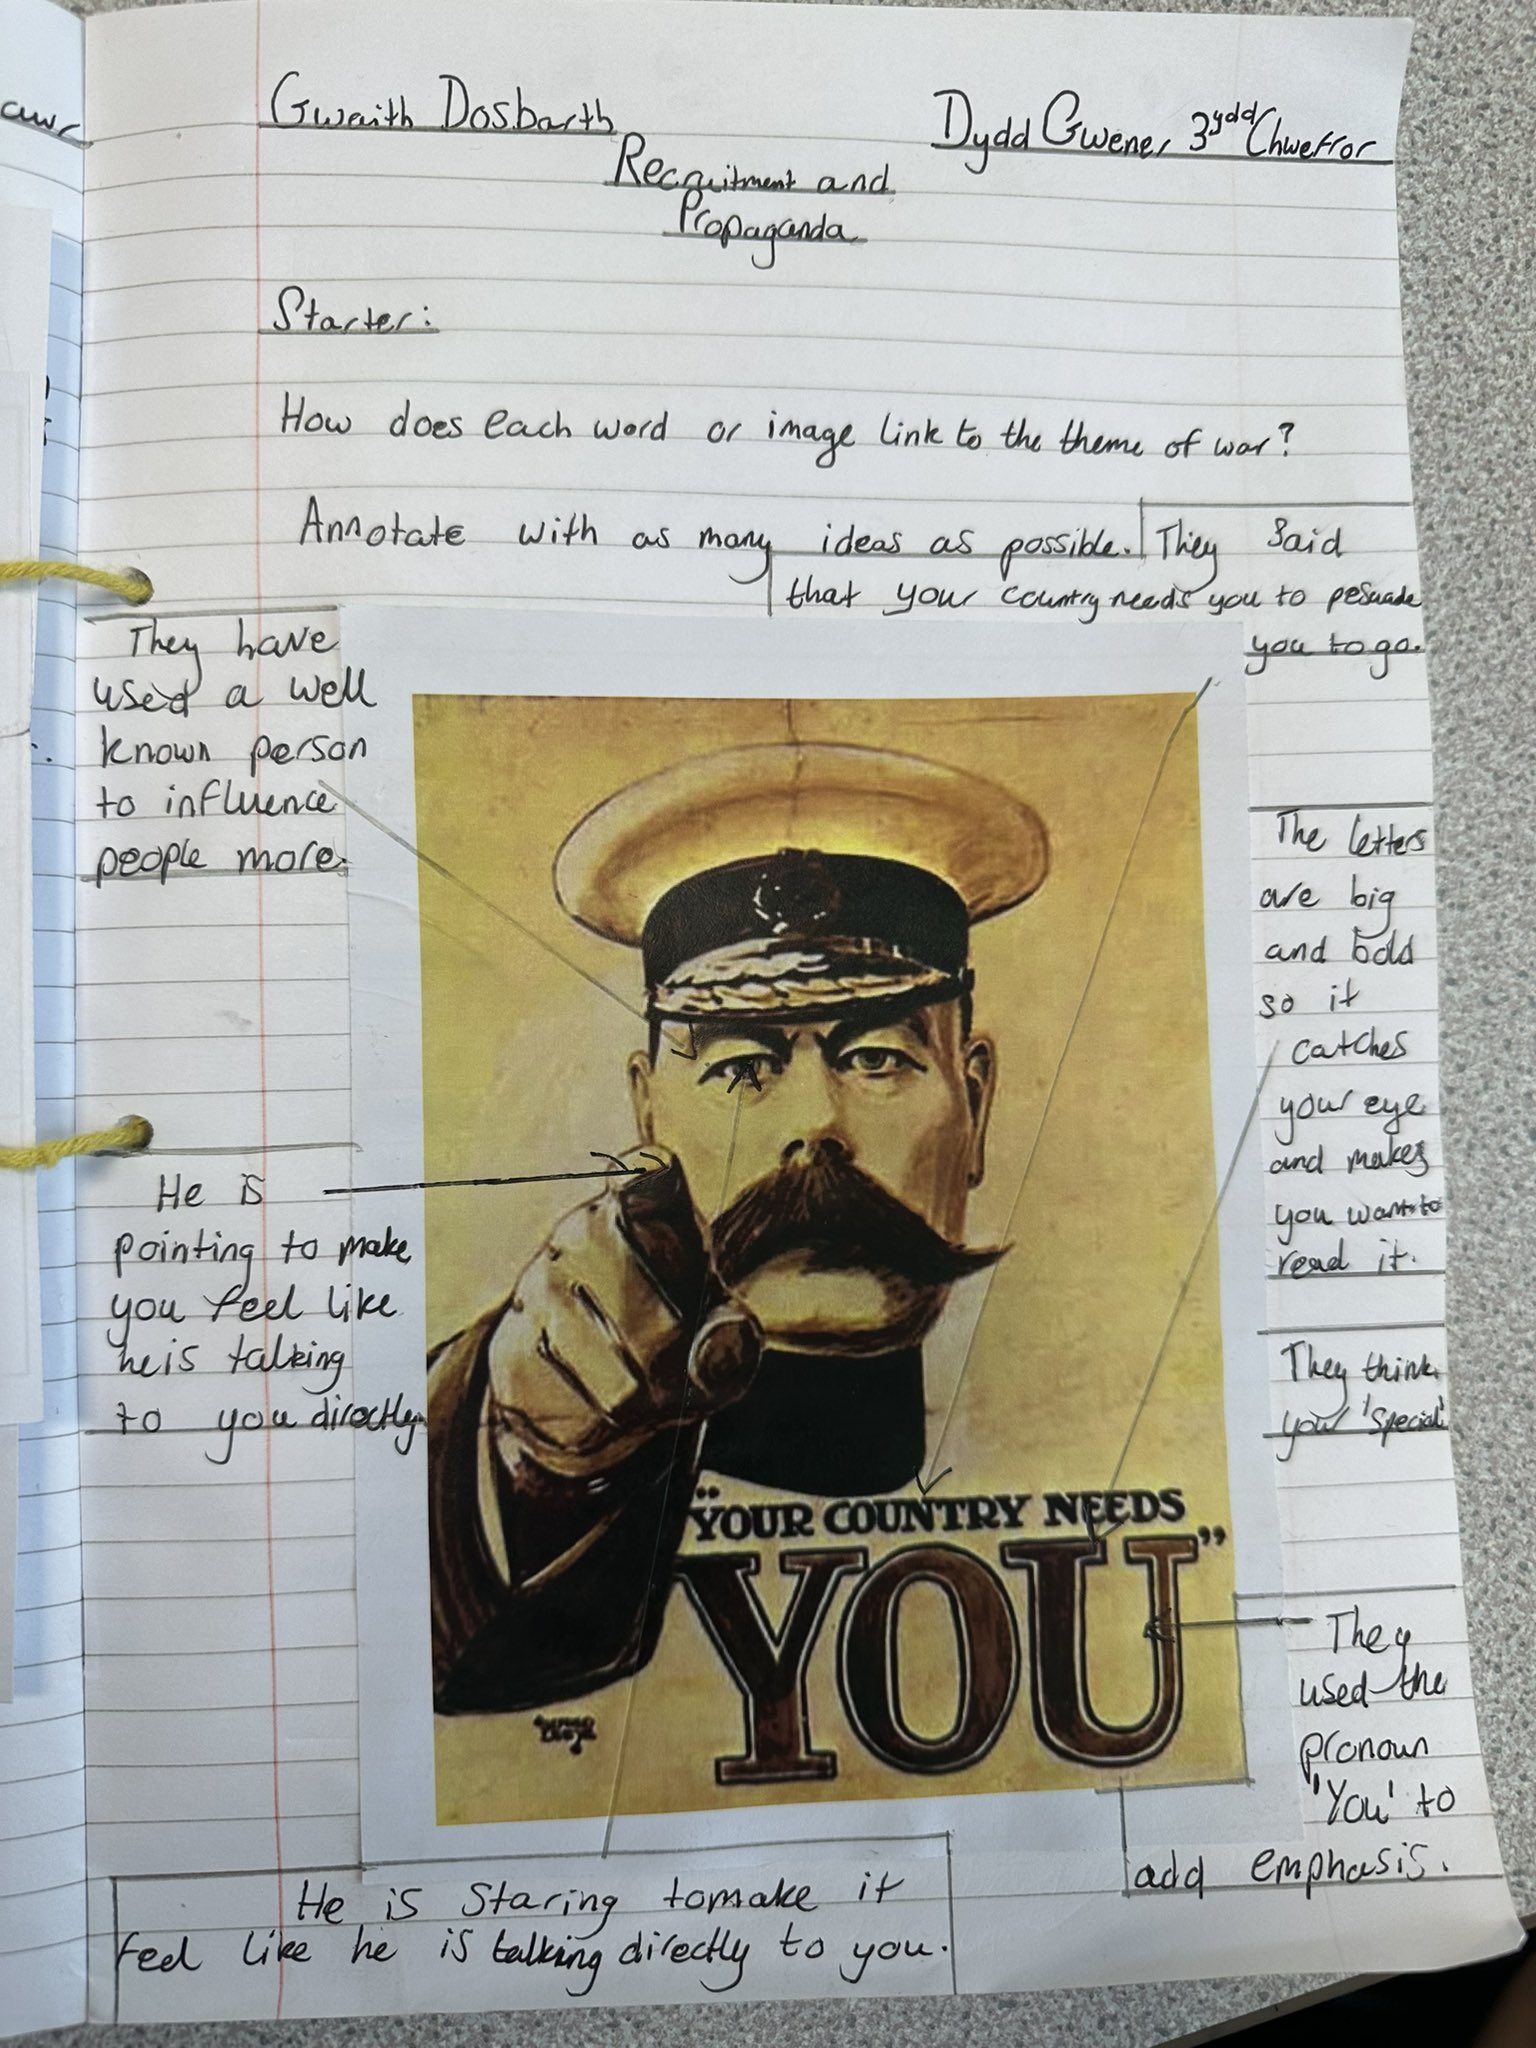 awr
Gwaith Dosbarth
Dydd Gwener 3ydd Chwefror
Recruitment and
Propaganda
Starter:
How does each word or image link to the theme of war?
Annotate with as many ideas as possible.
They said
that your country needs you to pesuade
you to go.
They have
used a well
known person
to influence
people more.
The letters
are big
and bold
so it
catches
your eye
and makes
you want to
read it.
He is
pointing to make
you feel like
he is talking
to you directly.
They think
your 'special'
"YOUR COUNTRY NEEDS
YOU"
They
used the
pronoun
'You' to
add emphasis.
He is staring to make it
feel like he is talking directly to you.